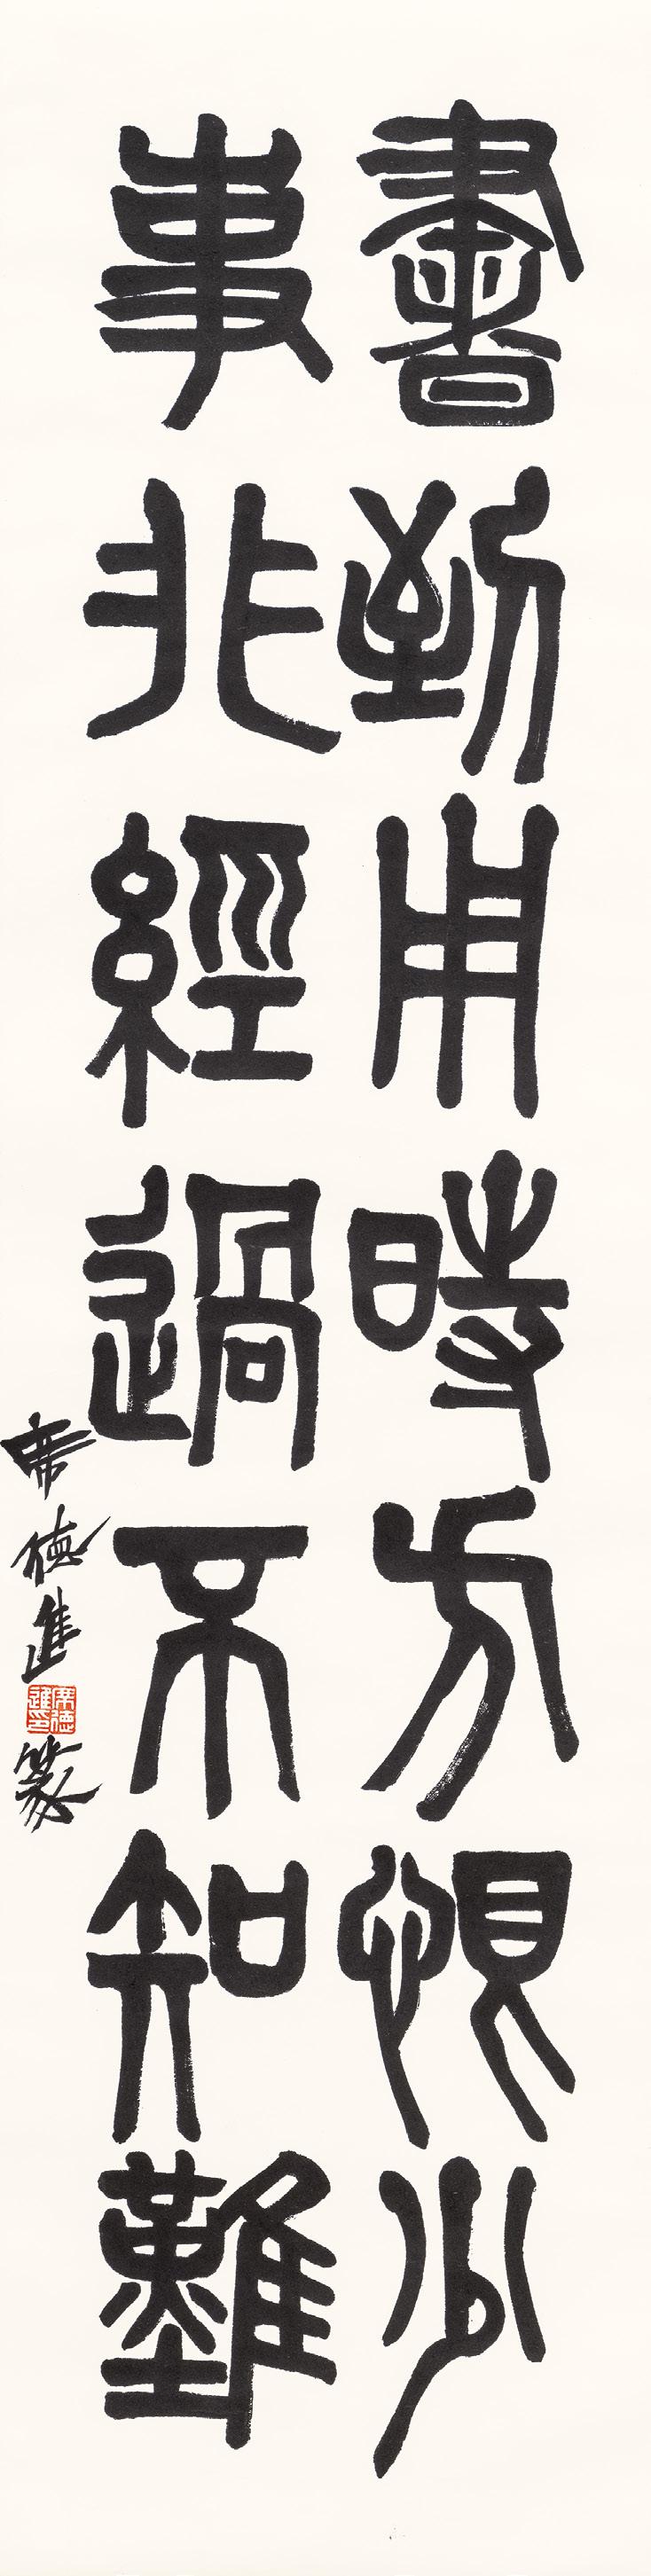 書到用時方恨少
事非經過不知難
席德進篆
席德進印